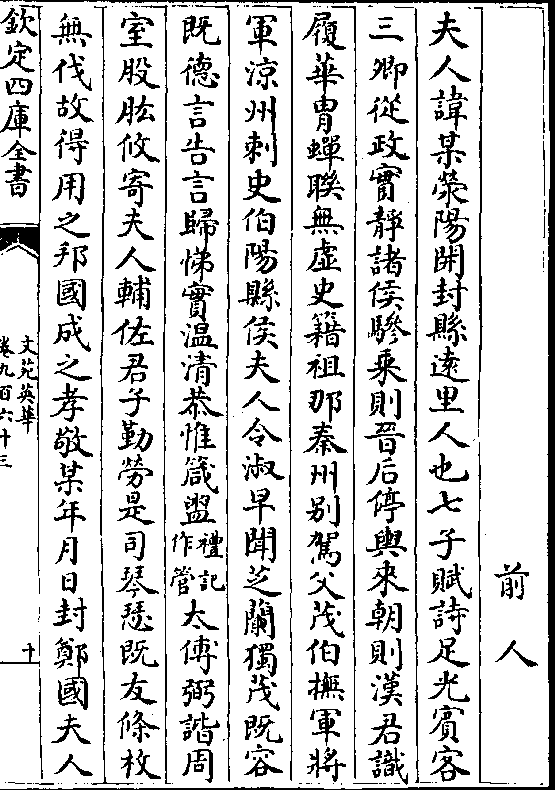 前人
夫人諱某滎陽開封縣遠里人也七子賦詩足光賓客
三卿從政實靜諸侯驂乗則晉后停輿來朝則漢君識
履華胄蟬聯無虛史籍祖那秦州别駕父茂伯撫軍將
軍涼州刺史伯陽縣侯夫人令淑早聞芝蘭獨茂既容
既德言告言歸悌實温清恭惟箴盥禮記作管太傅弼諧周
室股肱攸寄夫人輔佐君子勤勞是司琴瑟既友條枚
無伐故得用之邦國成之孝敬某年月日封鄭國夫人
欽定四庫全書
文苑英華
卷九百六十三
十